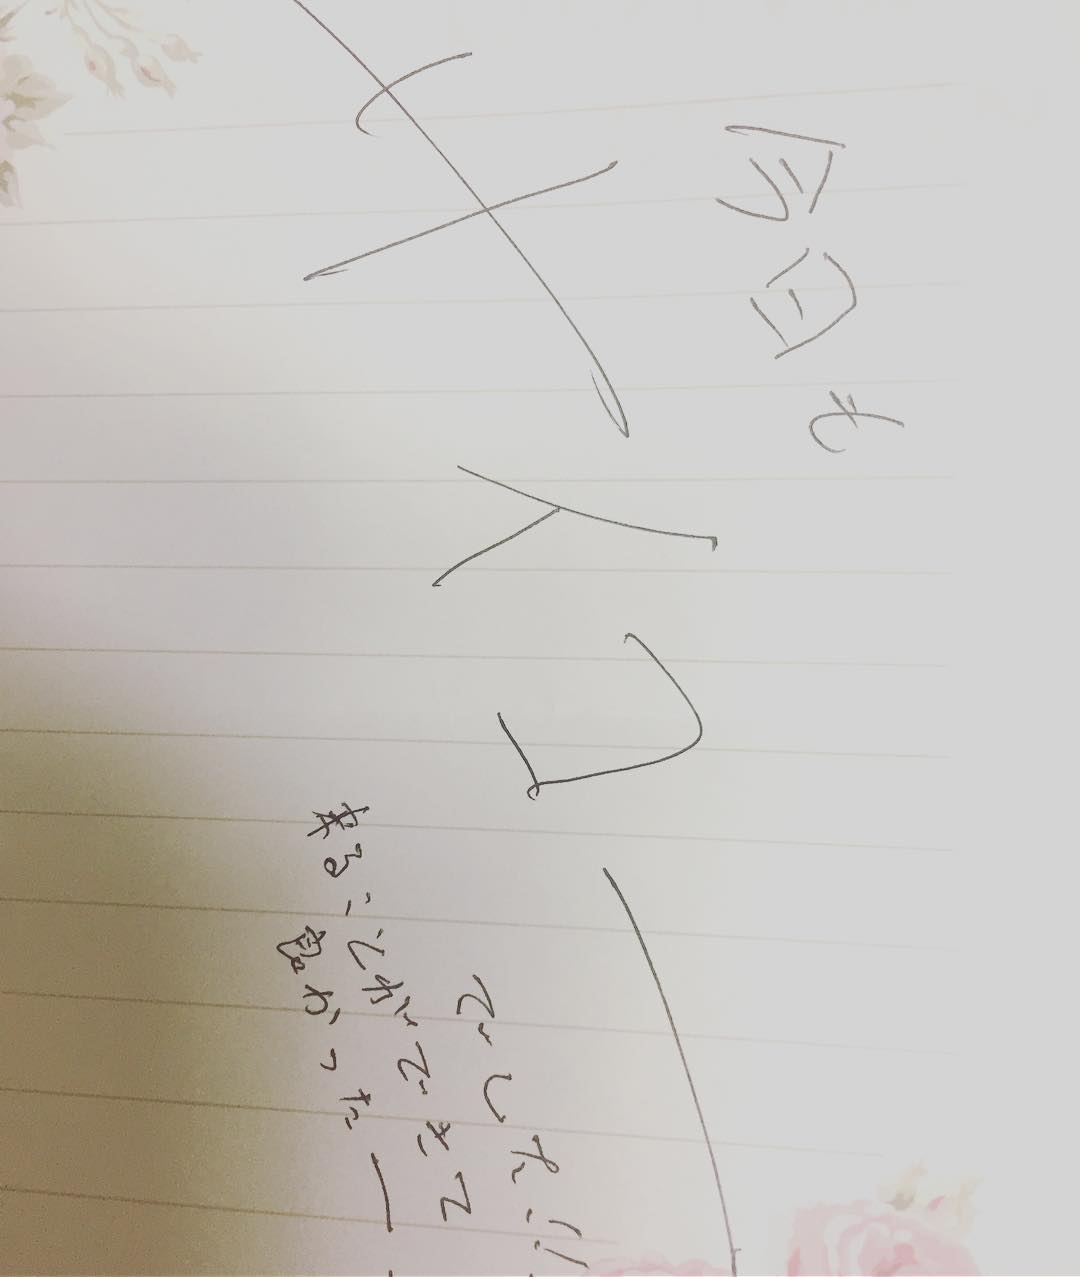 今日も
サイコー
でした!!
来ることができて
良かったー